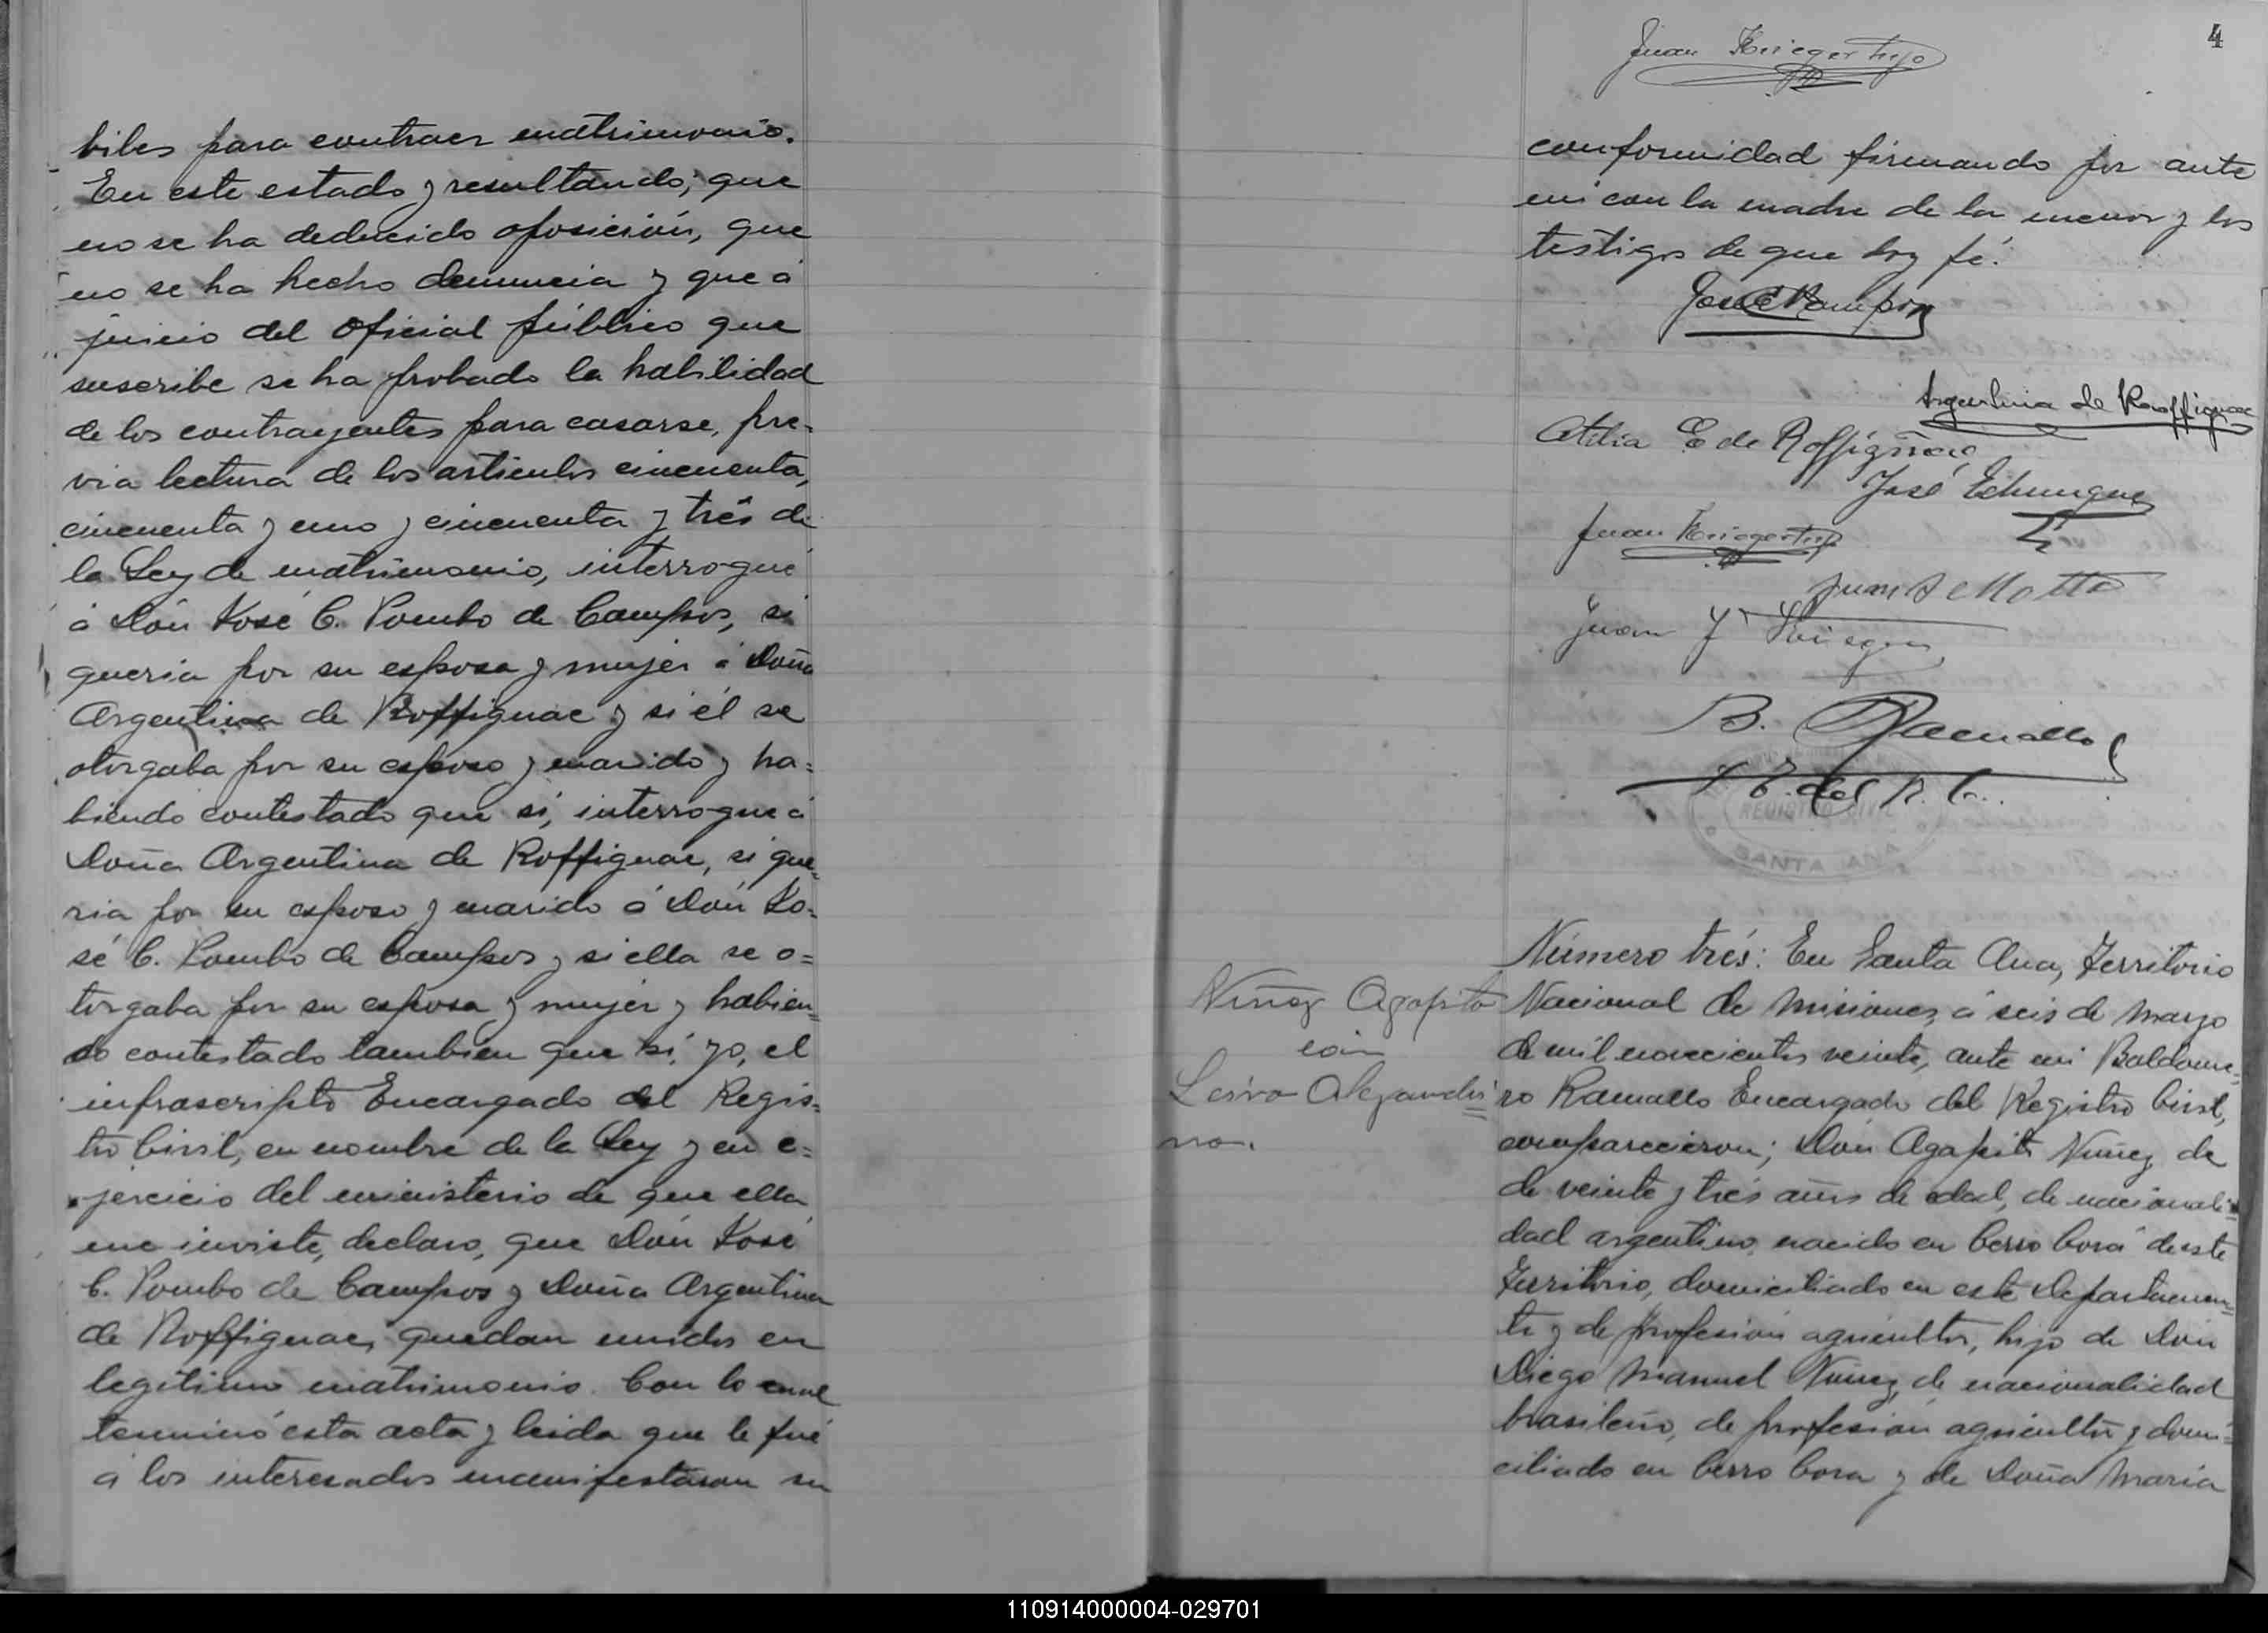 biles para contraer matrimonio.
En este estado y resultando; que
no se ha deducido oposición, que
no se ha hecho denuncia y que á
juicio del oficial público que
suscribe se ha probado la habilidad
de los contrayentes para casarse, pre=
via lectura de los articulos cincuenta,
cincuenta y uno y cincuenta y trés de
la Ley de matrimonio, interrogué
á Dón José C. Pombo de Campos, si
queria por su esposa y mujer á Doña
Argentina de Roffignac y si él se
otorgaba por su esposo y marido y ha=
biendo contestado que sí, interrogué á
Doña Argentina de Roffignac, si que=
ria por su esposo y marido á Dón Jo=
sé C. Pombo de Campos y si ella se o=
torgaba por su esposa y mujer y habien=
do contestado tambien que sí, yo, el
infrascripto Encargado del Regis=
tro Civil, en nombre de la Ley y en e=
jercicio del ministerio de que ella
me inviste, declaro, que Dón José
C. Pombo de Campos y Doña Argentina
de Roffignac, quedan unidos en
legitimo matrimonio. Con lo cual
terminó esta acta y leida que le fué
á los interesados manifestaron su
4
Juan Krieger hijo
conformidad firmando por ante
mi con la madre de la menor y los
testigos de que doy fé.
José C Pampos
Argentina de Roffignac
Otilia E de Roffignac
José Echungue
Juan Krieger hijo
Juan A Motta
Juan Y Krieger
B. Ramallo
E. del R. C.
REGISTRO CIVIL
SANTA ANA
Número trés: En Santa Ana, Territorio
Nacional de Misiones, á seis de Marzo
de mil novecientos veinte, ante mi Baldome=
ro Ramallo Encargado del Registro Civil,
comparecieron; Dón Agapito Nuñez, de
de veinte y trés años de edad, de nacionali=
dad argentino, nacido en Cerro Corá de este
Territorio, domiciliado en este Departamen=
to y de profesión agricultor, hijo de Dón
Diego Manuel Nuñez, de nacionalidad
brasileño, de profesión agricultor y domi=
ciliado en Cerro Cora y de Doña María
Nuñez Agapito
con
Leiva Alejandri=
na.
110914000004-029701